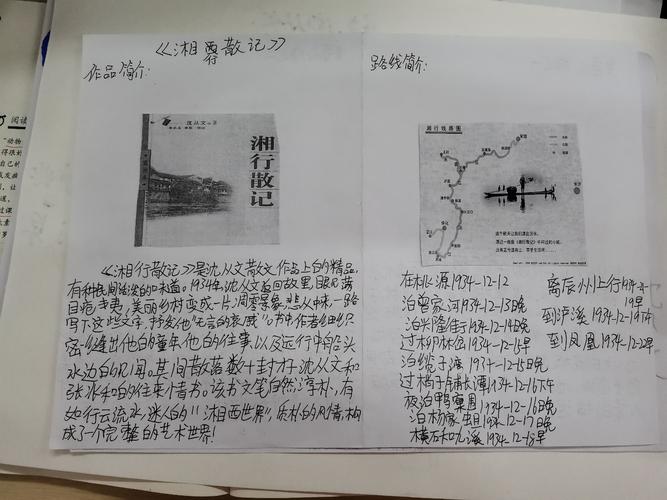 《湘西散记》
作品简介:
沈从文 著
湘行散记
《湘行散记》是沈从文散文作品上的精品,
有种民间淡淡的味道。1934年,沈从文返回故里,眼见满
目疮夷,美丽乡村变成一片凋零景象,悲从中来,一路
写下这些文字,抒发他"无言的哀戚"。书中作者细纱
密缝出他的童年他的往事,以及远行中船头
水边的风闻。其间散落数十封于沈从文和
张兆和的往来情书。该书文笔自然淳朴,有
如行云流水,迷人的"湘西世界",质朴的风情构
成了一个完整的艺术世界!
路线简介:
湘行线路图
在桃源1934-12-12
泊曾家河1934-12-13晚
泊兴隆街1934-12-14晚
过柳林岔1934-12-15早
泊缆子湾1934-12-15晚
过梢子铺长潭1934-12-16下午
夜泊鸭窠围1934-12-16晚
泊杨家岨1934-12-17晚
横石和九溪1934-12-18早
离辰州上行
19早
到泸溪1934-12-19下午
到凤凰1934-12-22早
阅读
"动物